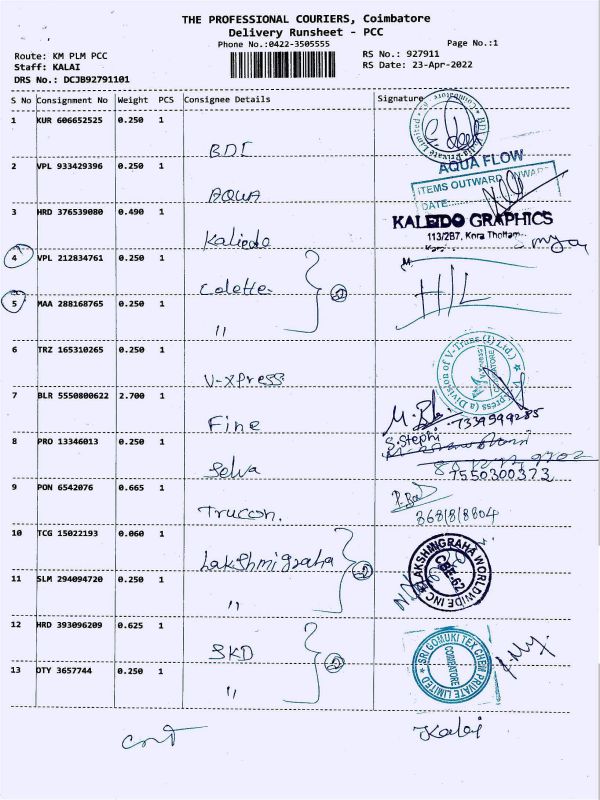 THE PROFESSIONAL COURIERS, Coimbatore
Delivery Runsheet - PCC
Phone No.:0422-3505555
Page No.:1
Route: KM PLM PCC
RS No.: 927911
Staff: KALAI
RS Date: 23-Apr-2022
DRS No.: DCJB92791101
S No Consignment No Weight PCS Consignee Details Signature
1 KUR 606652525 0.250 1
BDI
2 VPL 933429396 0.250 1
AQUA FLOW
ITEMS OUTWARD
DATE:
AQUA
3 HRD 376539080 0.490 1
KALEIDO GRAPHICS
113/2B7, Kora Thottam
Kaliedo
4 VPL 212834761 0.250 1
Colette
2
5 MAA 288168765 0.250 1
H/L
"
6 TRZ 165310265 0.250 1
(a Division of V-Trans (I) Ltd.)
COIMBATORE
V-XPress
7 BLR 5550800622 2.700 1
7339599285
Fine
8 PRO 13346013 0.250 1
S. Stephi
7550300373
Selva
9 PON 6542076 0.665 1
Truccon.
10 TCG 15022193 0.060 1
LAKSHMIGRAHA WORLDWIDE INC
CBE-62
Lakshmigraha
2
11 SLM 294094720 0.250 1
"
12 HRD 393096209 0.625 1
SRI GOMUKI TEX CHEM PRIVATE LIMITED
COIMBATORE
SKD
2
13 DTY 3657744 0.250 1
"
Kalai